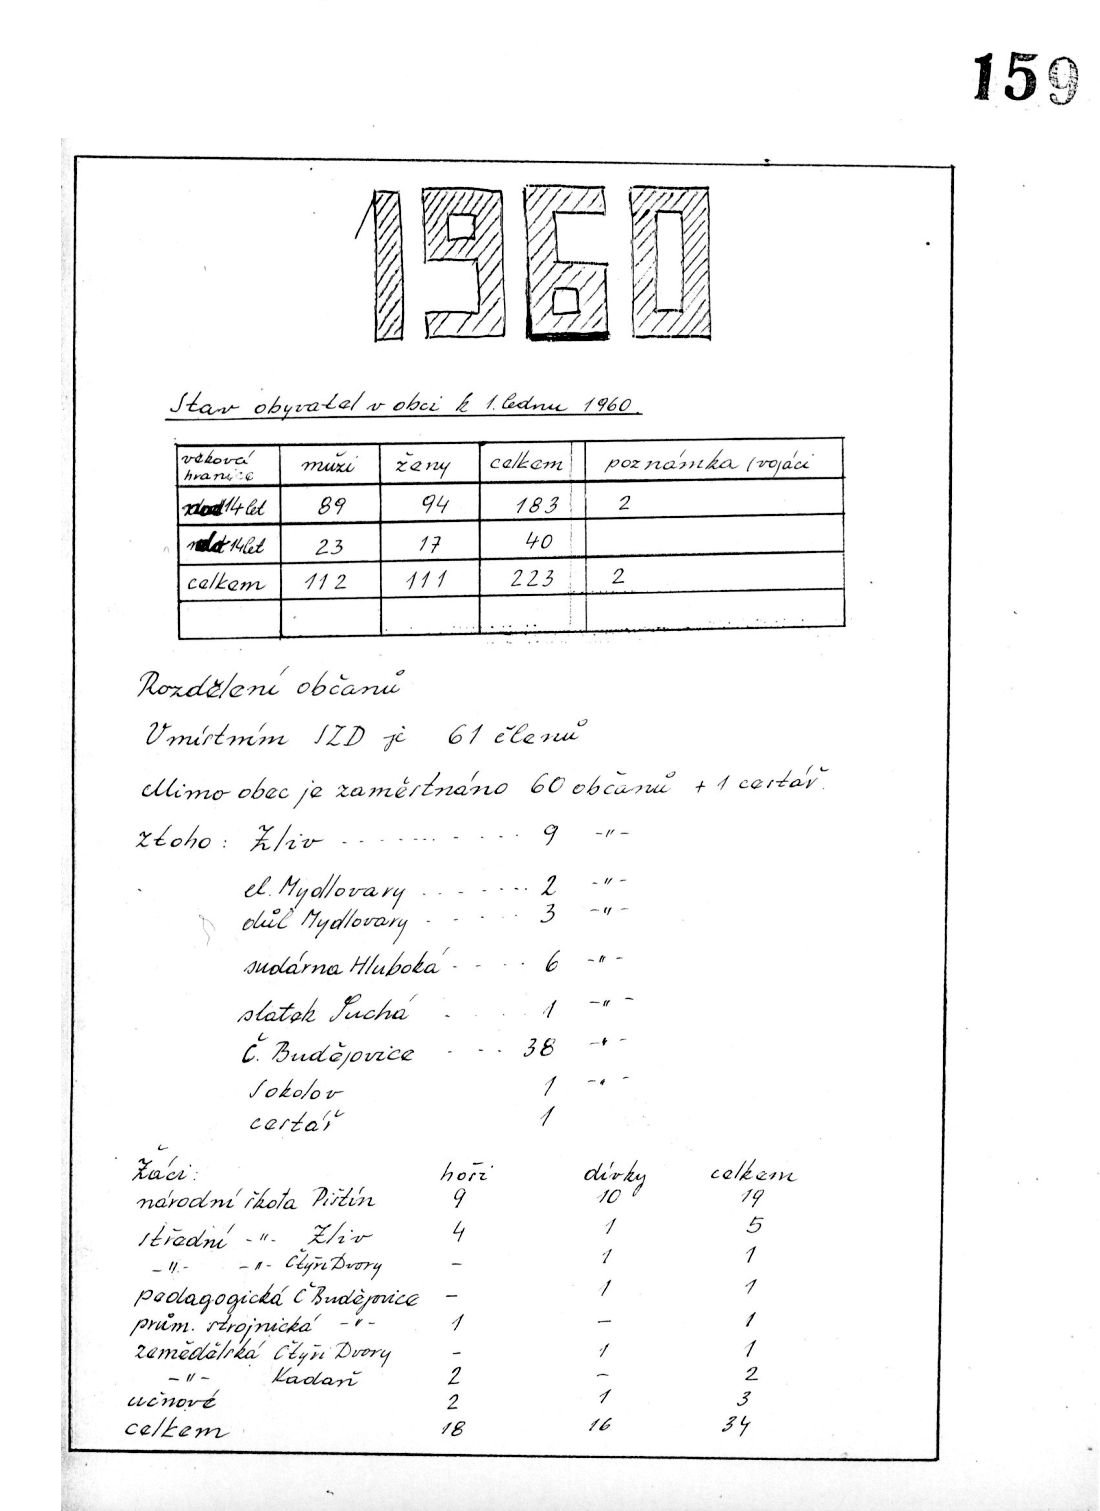 159
1960
Stav obyvatel v obci k 1. lednu 1960.
věková hranice muži ženy celkem poznámka (vojáci
14 let 89 94 183 2
14 let 23 17 40
celkem 112 111 223 2
Rozdělení občanů
V místním JZD je 61 členů
Mimo obec je zaměstnáno 60 občanů + 1 cestář.
z toho: Zliv ........... 9 -"-
el. Mydlovary ....... 2 -"-
důl Mydlovary ..... 3 -"-
sudárna Hluboká .... 6 -"-
statek Suchá . . 1 -"-
Č. Budějovice ... 38 -"-
Sokolov 1 -"-
cestář 1
Žáci: hoši dívky celkem
národní škola Pištín 9 10 19
střední -"- Zliv 4 1 5
-"- -"- Čtyři Dvory - 1 1
pedagogická Č Budějovice - 1 1
prům. strojnická -"- 1 - 1
zemědělská Čtyři Dvory - 1 1
-"- Kadaň 2 - 2
učnové 2 1 3
celkem 18 16 34